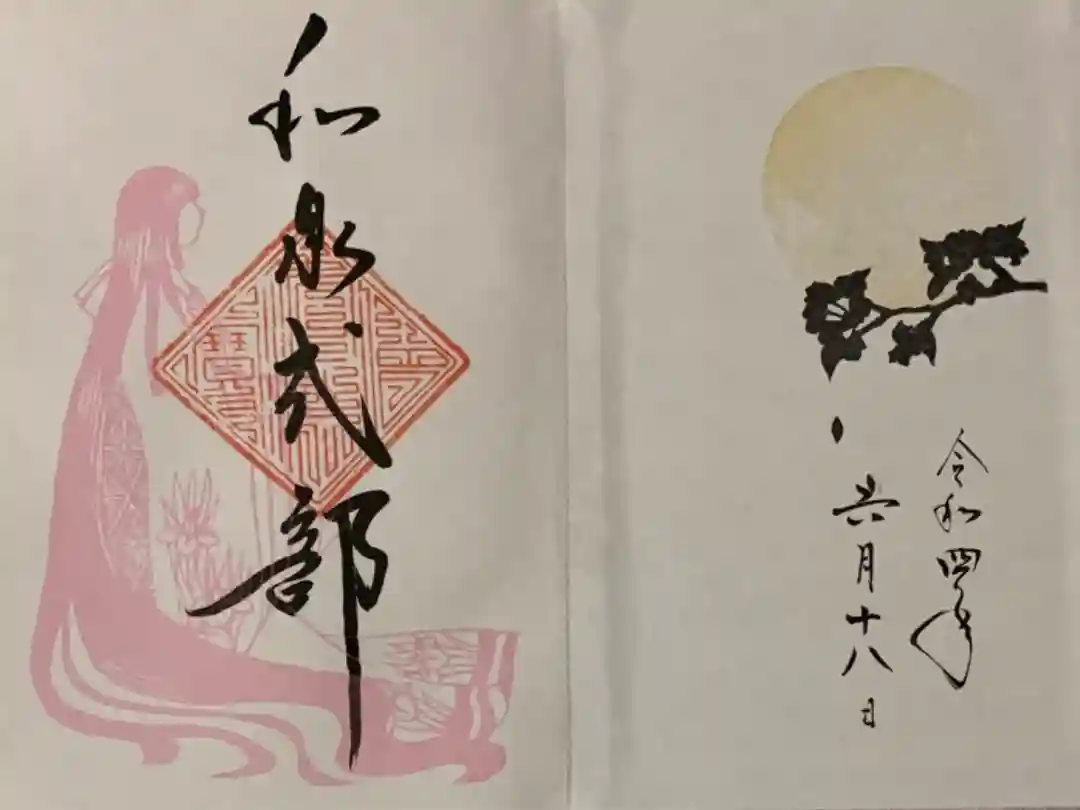 令和四年
六月十八日
和泉式部